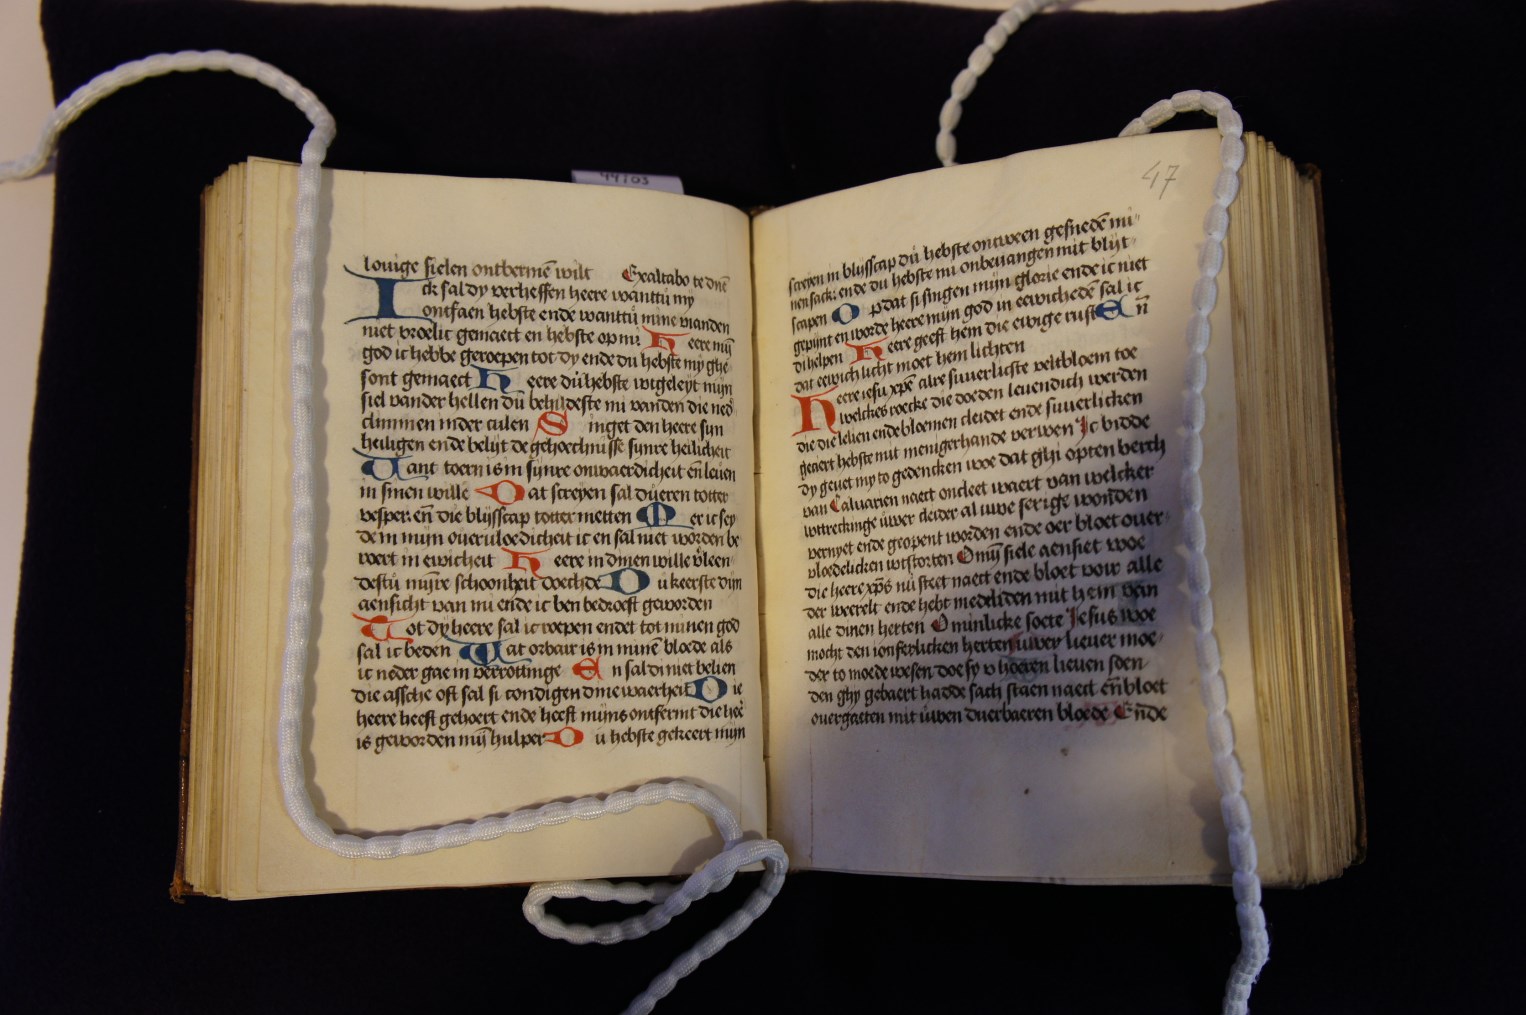 louige sielen ontbermē wilt Exaltabo te dn̄e
Ick sal dy verheffen heere wanttu my
ontfaen hebste ende wanttu mine vianden
niet vroelic gemaect en hebste op mi Heere mȳ
god ic hebbe geroepen tot dy ende du hebste my ghe
sont gemaect Heere du hebste wtgeleyt mijn
siel vander hellen du behildeste mi vanden die ned
climmen inder culen Singet den heere sijn
heiligen ende belijt de gehoechnisse sijnre heilicheit
Want toern is in sijnre onwaerdicheit eñ leuen
in sinen wille Dat screyen sal dueren totter
vesper eñ die blijsscap totter metten Mer ic sey
de in mijn oueruloedicheit ic en sal niet worden be
roert in ewicheit Heere in dinen wille v̄leen
destu mijnre schoonheit doechde Du keerste dijn
aensicht van mi ende ic ben bedroeft geworden
Tot dy heere sal ic roepen ende tot minen god
sal ic beden Wat orbair is in minē bloede als
ic neder gae in verrottinge En sal di niet belien
die assche oft sal si condigen dine waerheit Die
heere heeft gehoert ende heeft mijns ontfermt die heē
is geworden mȳ hulper Du hebste gekeert mijn
47
screyen in blijsscap du hebste ontween gesnedē mi
nen sack: ende du hebste mi onbeuangen mit blijt
scapen Op dat si singen mijn glorie ende ic niet
gepijnt en worde heere mijn god in eewichedē sal ic
di helpen Heere geeft hem die ewige rust Eñ
dat eewich licht moet hem lichten
Heere iesu xp̄e alre suuerlicste veltbloem toe
welckes roecke die doeden leuendich werden
die die lelien ende bloemen cleidet ende suuerlicken
geciert hebste mit menigerhande verwen Ic bidde
dy geuet my to gedencken woe dat ghi opten berch
van Caluarien naect ontcleet waert van welcker
wttreckinge uwer cleider al uwe serige wonden
vernyet ende geopent worden ende oer bloet ouer
vloedelicken wtstorten O mȳ siele aensiet woe
die heere xp̄s nu steet naect ende bloet voir alle
der weerelt ende hebt medeliden mit hem van
alle dinen herten O minlicke soete Jesus woe
mocht den ionferlicken herten uwer lieuer moe
der to moede wesen doe sy v hoeren lieuen soen
den ghy gebaert hadde sach staen naect eñ bloet
ouergaeten mit uwen duerbaeren bloede Ende